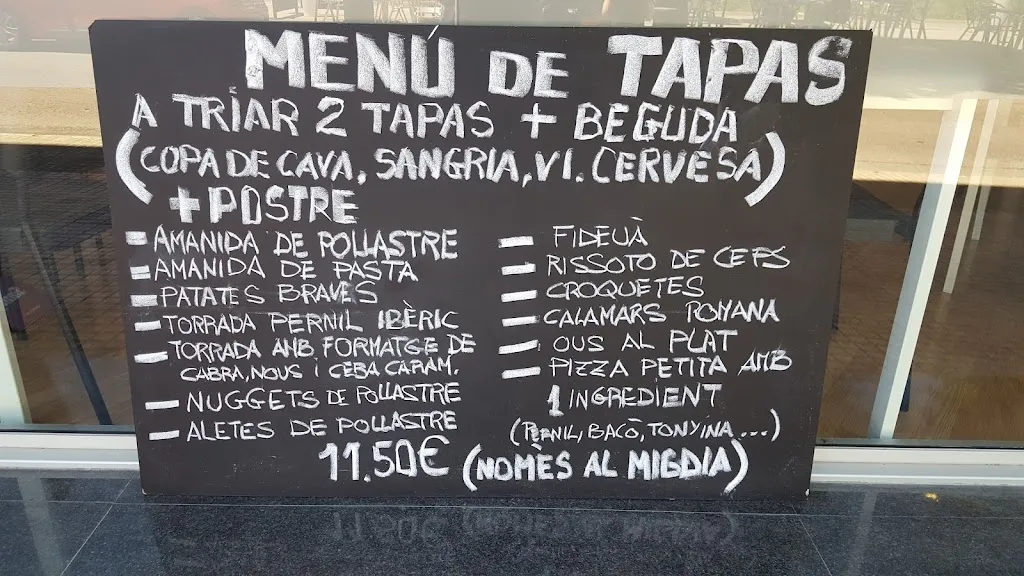 MENÚ DE TAPAS
A TRIAR 2 TAPAS + BEGUDA
(COPA DE CAVA, SANGRIA, VI. CERVESA)
+ POSTRE
- AMANIDA DE POLLASTRE
- AMANIDA DE PASTA
- PATATES BRAVES
- TORRADA PERNIL IBÈRIC
- TORRADA AMB FORMATGE DE
CABRA, NOUS I CEBA CARAM.
- NUGGETS DE POLLASTRE
- ALETES DE POLLASTRE
- FIDEUÀ
- RISSOTO DE CEPS
- CROQUETES
- CALAMARS ROMANA
- OUS AL PLAT
- PIZZA PETITA AMB
1 INGREDIENT
(PERNIL, BACÓ, TONYINA...)
11.50€ (NOMÈS AL MIGDIA)